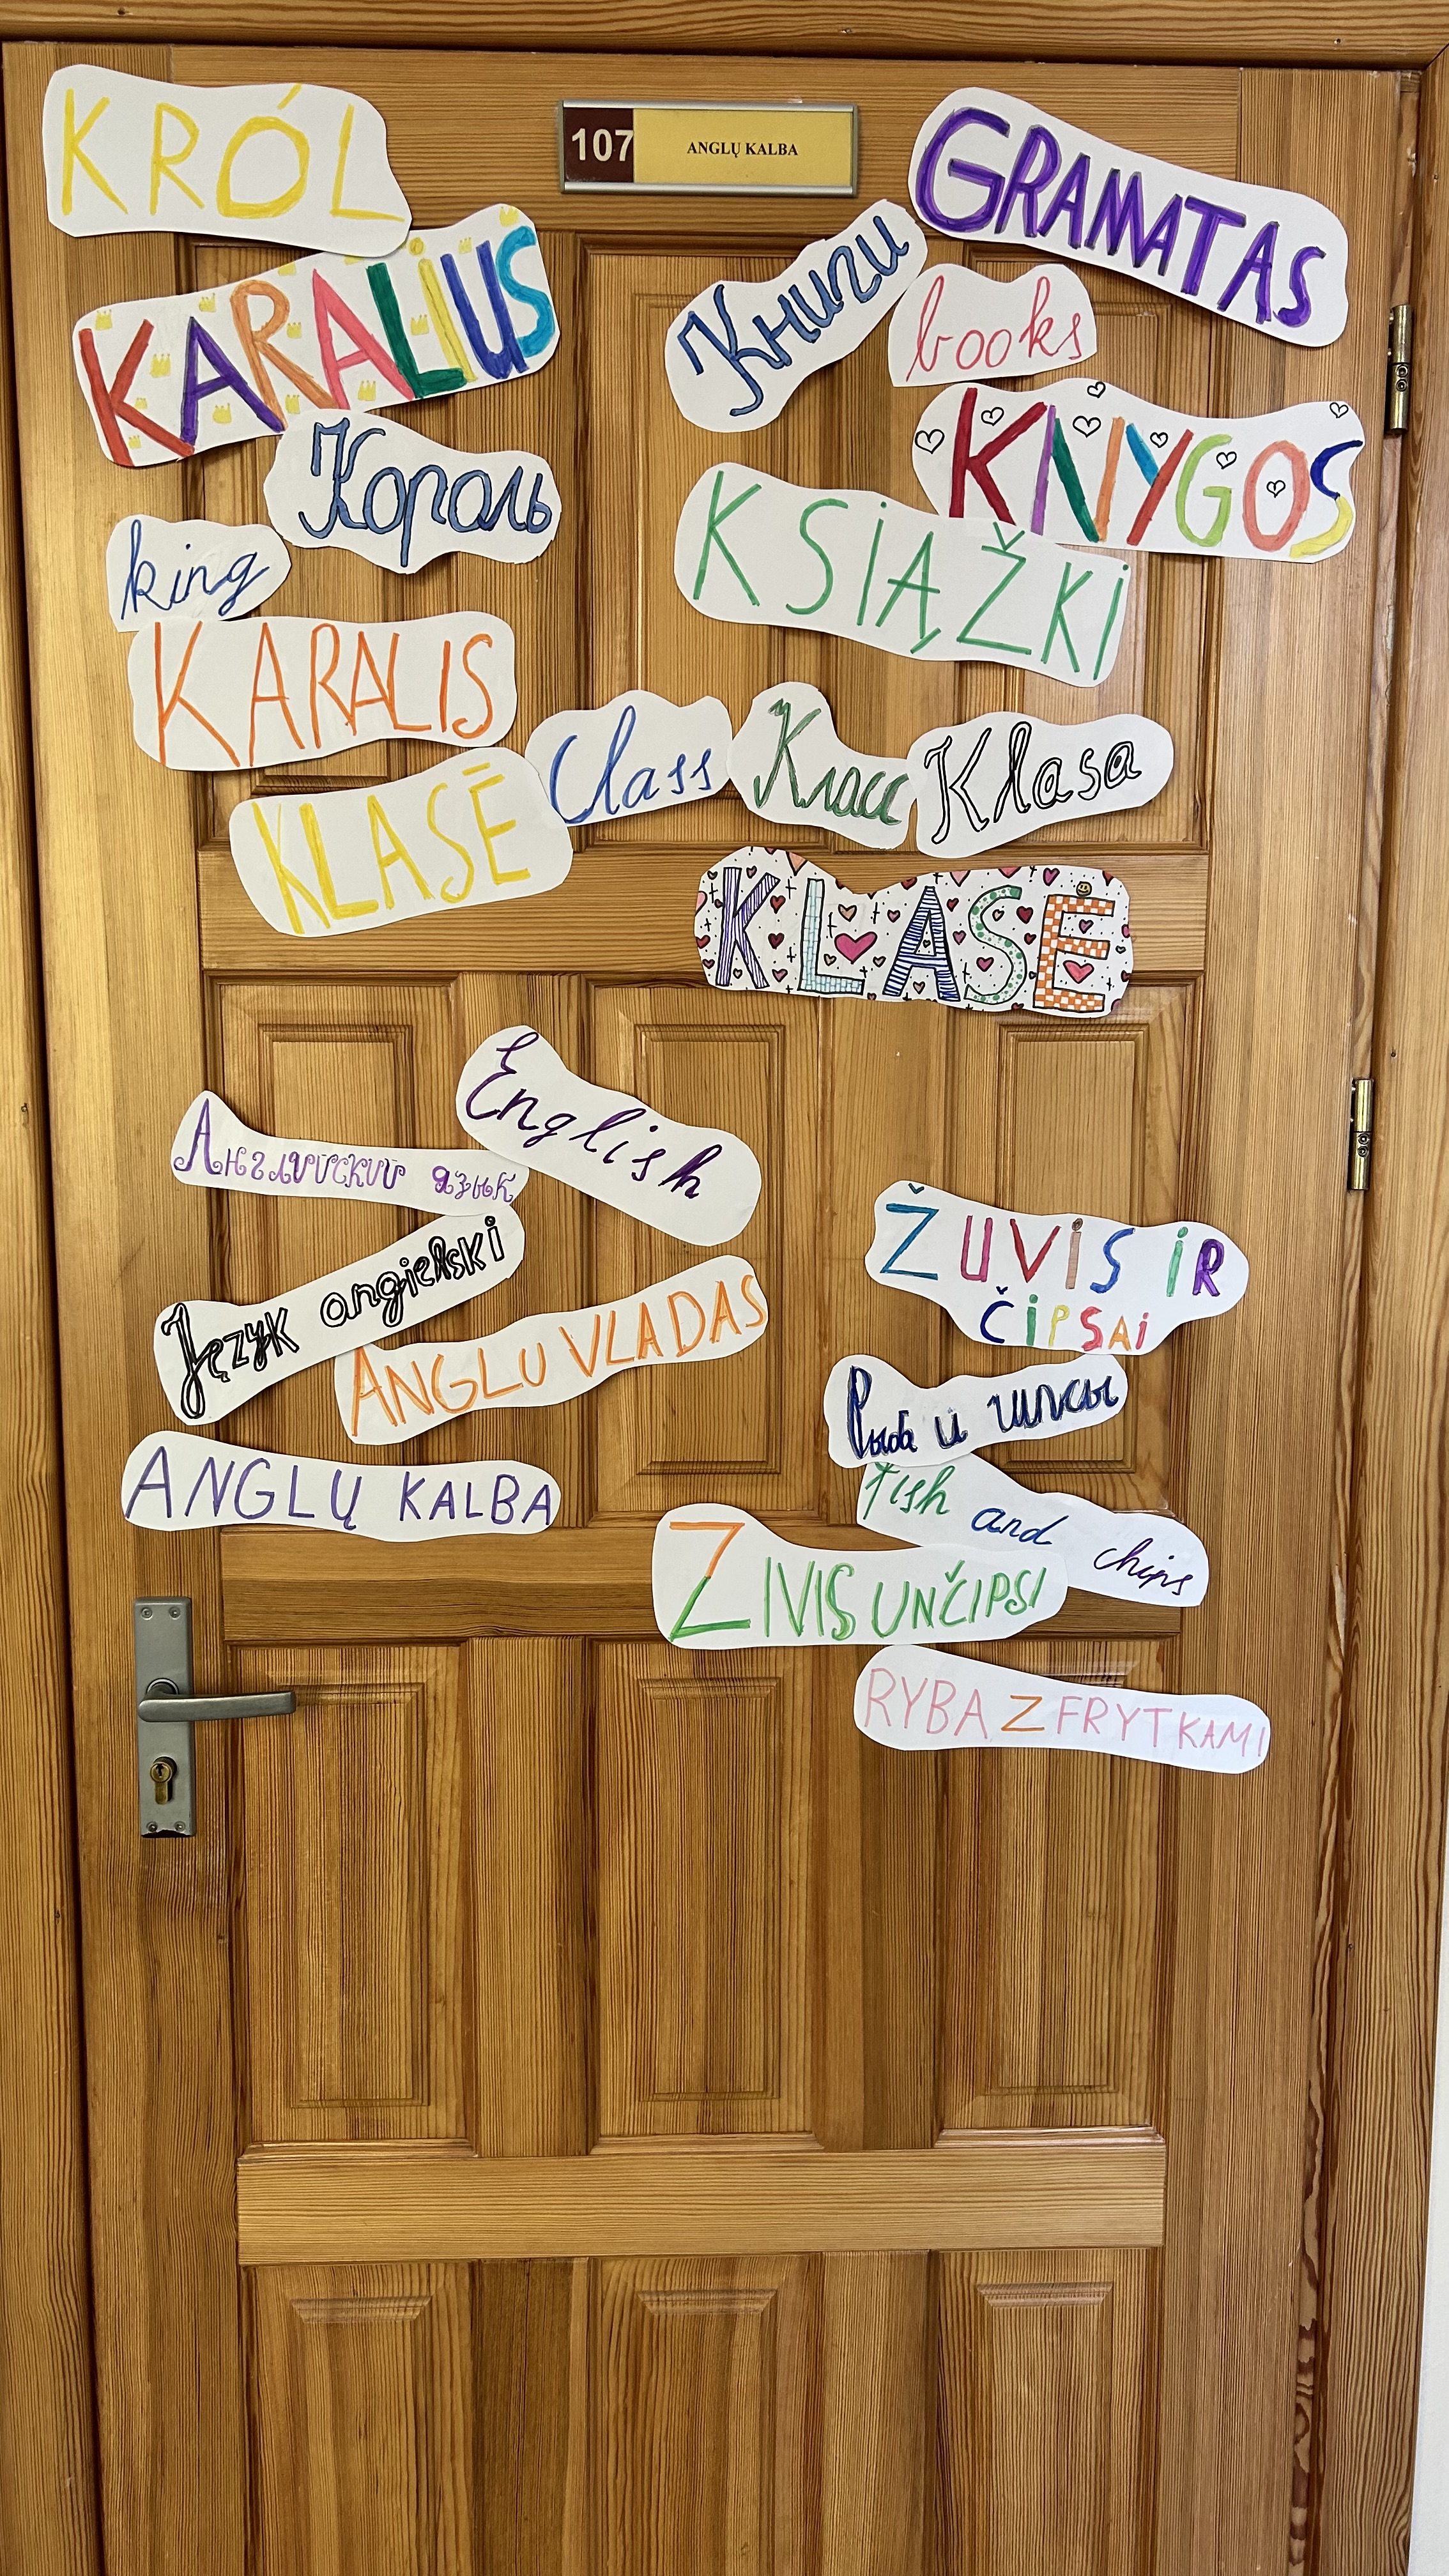 KRÓL
107 ANGLŲ KALBA
GRAMATAS
KARALIUS
Книги
books
KNYGOS
Король
KSIĄŽKI
king
KARALIS
Class
Класс
Klasa
KLASĒ
KLASĖ
English
Английский язык
Język angielski
ANGLU VLADAS
ANGLŲ KALBA
ŽUVIS IR
ČIPSAI
Рыба и
fish and chips
ZIVIS UN ČIPSI
RYBA Z FRYTKAMI